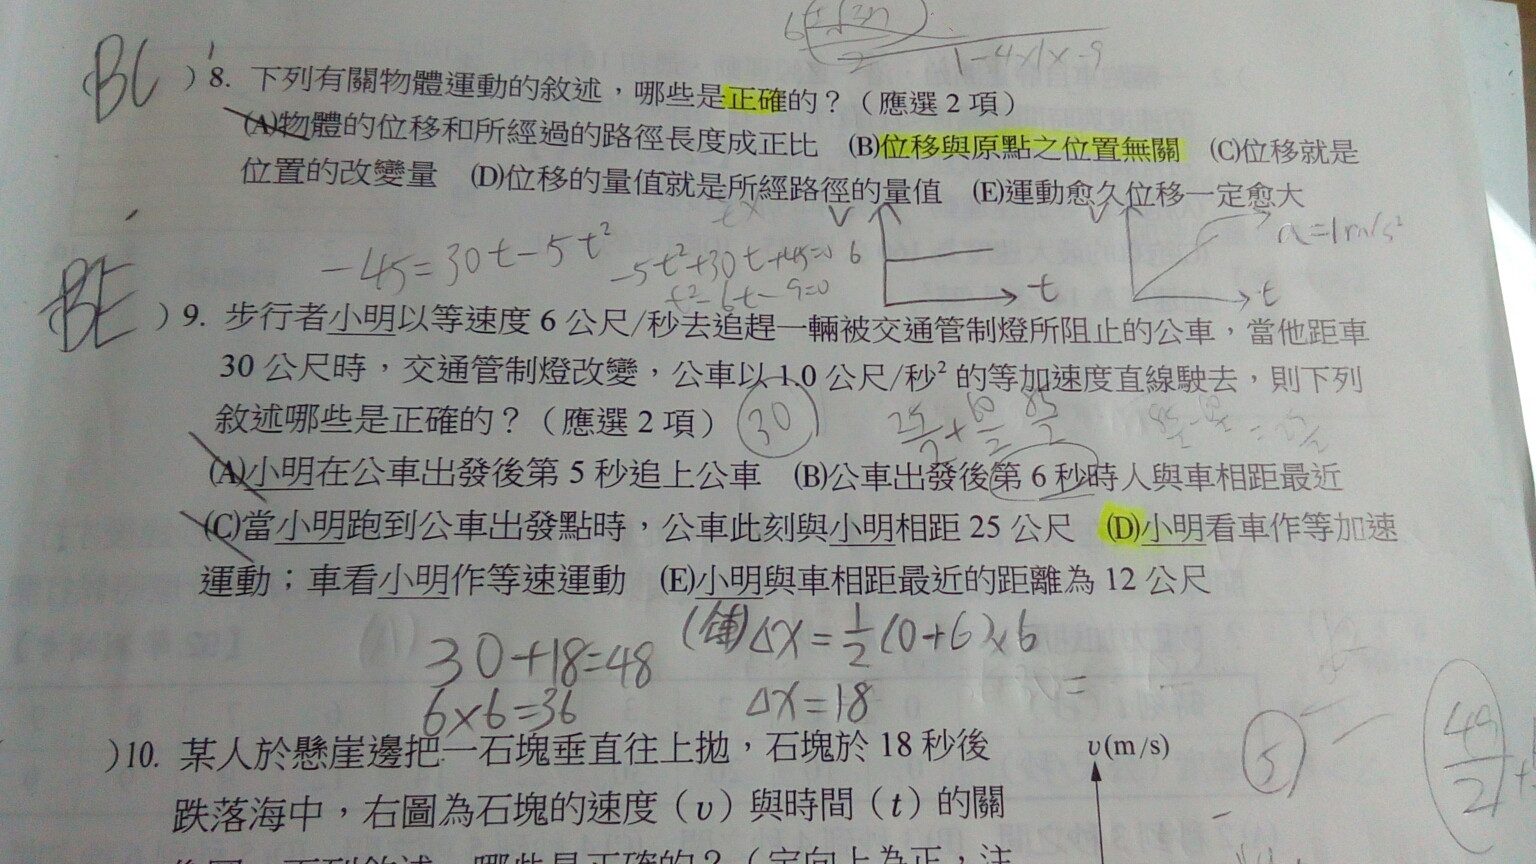 BC )8. 下列有關物體運動的敘述，哪些是正確的？（應選 2 項）
(A)物體的位移和所經過的路徑長度成正比　(B)位移與原點之位置無關　(C)位移就是
位置的改變量　(D)位移的量值就是所經路徑的量值　(E)運動愈久位移一定愈大
-45=30t-5t²
-5t²+30t+45=0
t²-6t-9=0
v 6 t
v t a=1m/s²
BE )9. 步行者小明以等速度 6 公尺/秒去追趕一輛被交通管制燈所阻止的公車，當他距車
30 公尺時，交通管制燈改變，公車以 1.0 公尺/秒² 的等加速度直線駛去，則下列
敘述哪些是正確的？（應選 2 項） 30 25/2+60/2 85/2
(A)小明在公車出發後第 5 秒追上公車　(B)公車出發後第 6 秒時人與車相距最近
(C)當小明跑到公車出發點時，公車此刻與小明相距 25 公尺　(D)小明看車作等加速
運動；車看小明作等速運動　(E)小明與車相距最近的距離為 12 公尺
30+18=48 Δx=1/2(0+6)×6
6×6=36 Δx=18
)10. 某人於懸崖邊把一石塊垂直往上拋，石塊於 18 秒後 v(m/s) 5 49/2+
跌落海中，右圖為石塊的速度（v）與時間（t）的關